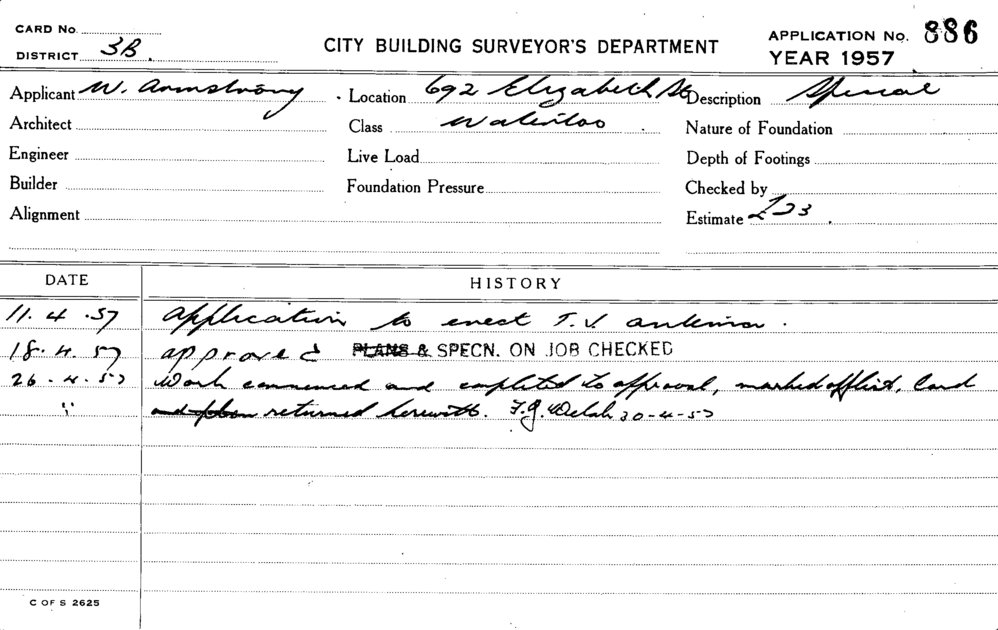 CARD No.
DISTRICT 3B.
CITY BUILDING SURVEYOR'S DEPARTMENT
APPLICATION No. 886
YEAR 1957
Applicant W. Armstrong
Location 692 Elizabeth St
Description Special
Architect
Class Waterloo
Nature of Foundation
Engineer
Live Load
Depth of Footings
Builder
Foundation Pressure
Checked by
Alignment
Estimate £23.
DATE HISTORY
11.4.57 Application to erect T.V. antenna.
18.4.57 approved PLANS & SPECN. ON JOB CHECKED
26.4.57 Work commenced and completed to approval, marked off list. Card
" and plan returned herewith. F.J. 30-4-57
C OF S 2625